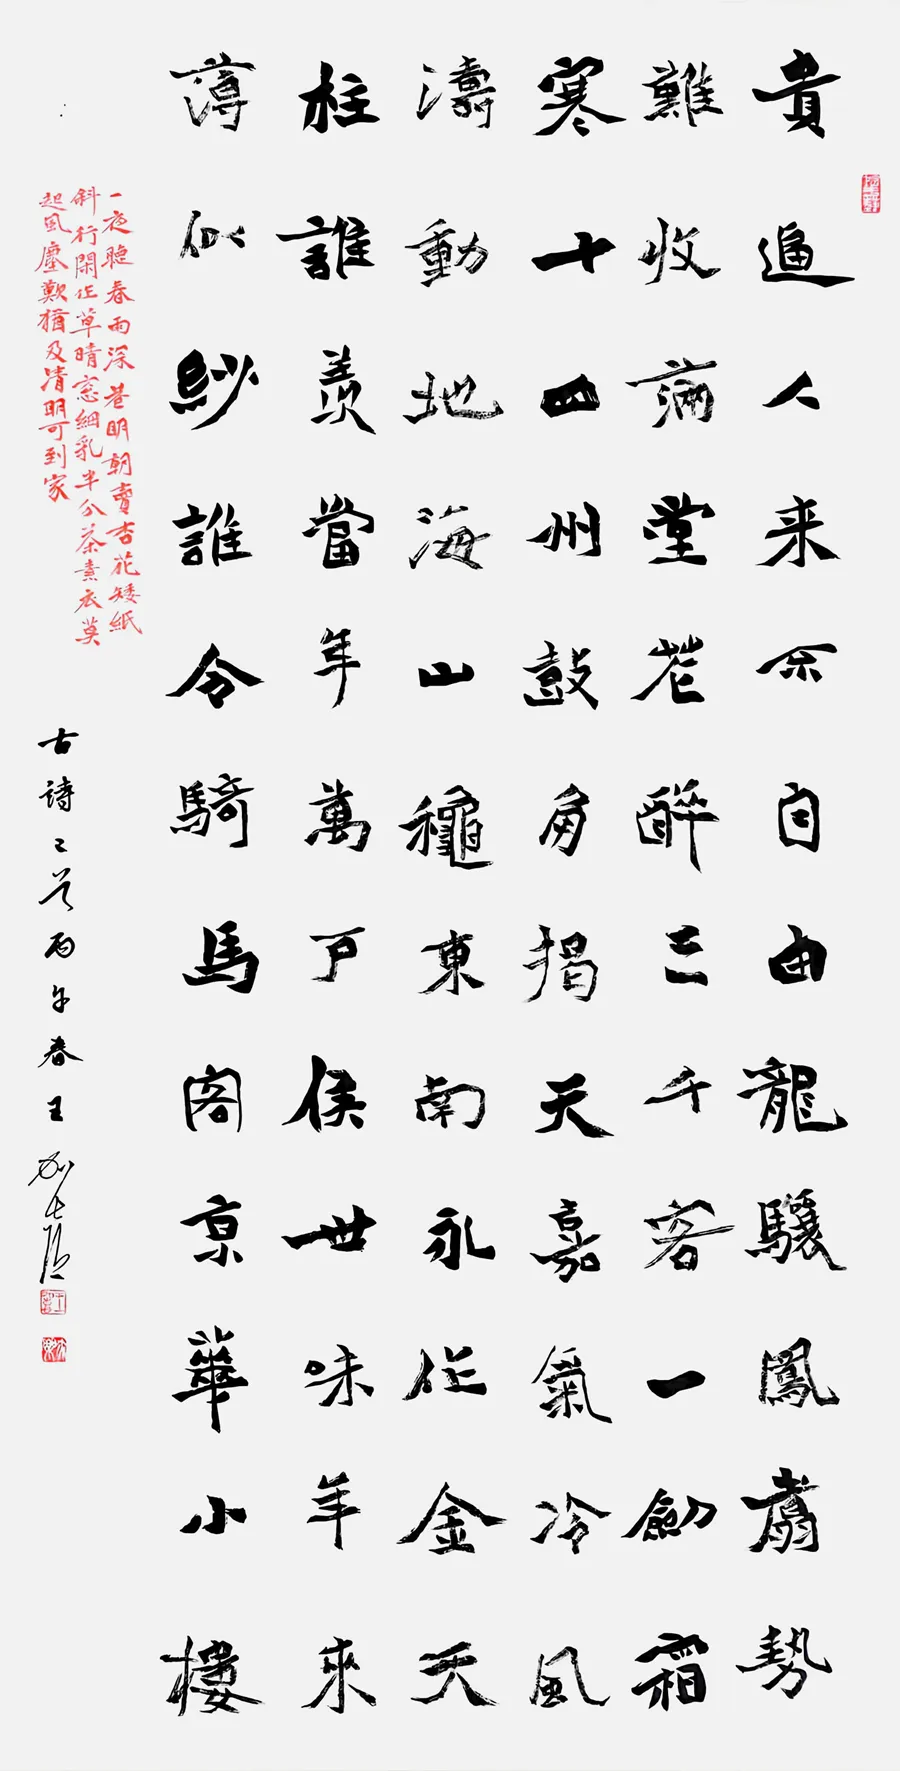 貴逼人来不自由龍驤鳳翥勢
難收滿堂花醉三千客一劍霜
寒十四州鼓角揭天嘉氣冷風
濤動地海山龝東南永作金天
柱誰羨當年萬戶侯世味年來
薄似紗誰令騎馬客京華小樓
一夜聴春雨深巷明朝賣杏花矮紙
斜行閑作草晴窓細乳半分茶素衣莫
起風塵歎猶及清明可到家
古詩二首丙午春王